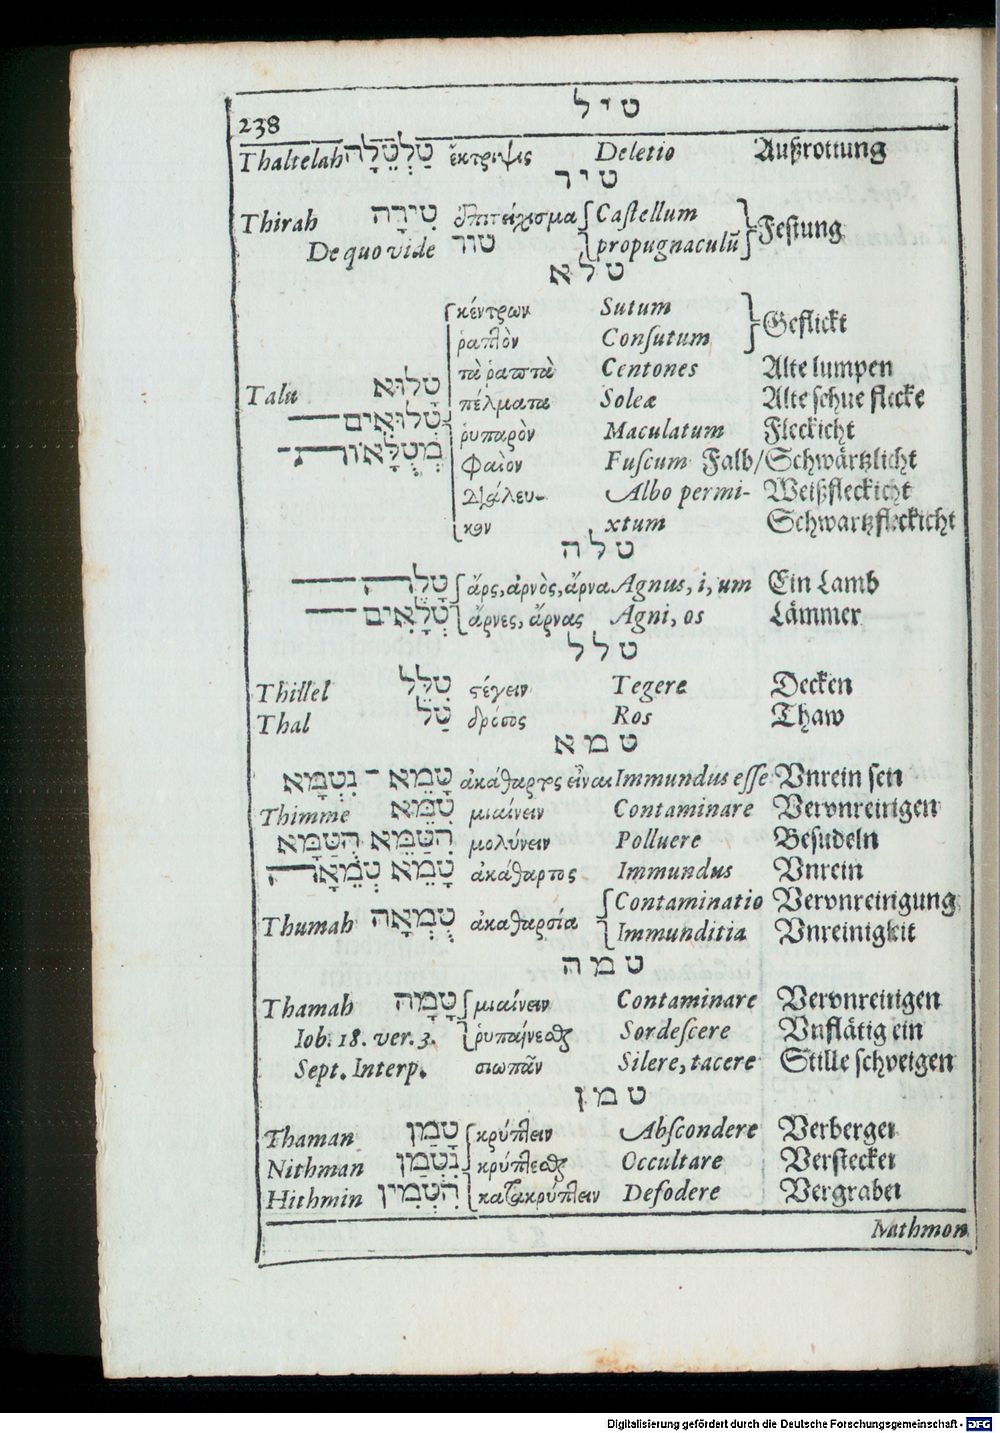 238 ט י ל
Thaltelah טַלְטֵלָה ἔκτριψις Deletio Außrottung
ט י ר
Thirah טִירָה ἐπιτείχισμα Castellum Festung
De quo vide טור propugnaculũ
ט ל א
κέντρων Sutum Geflickt
ῥαπτὸν Consutum
τὰ ῥαπτὰ Centones Alte lumpen
Talu טָלוּא πέλματα Soleæ Alte schue flecke
טְלוּאִים ῥυπαρὸν Maculatum Fleckicht
מְטֻלָּאוֹת φαιὸν Fuscum Falb/Schwärtzlicht
διάλευ- Albo permi- Weißfleckicht
κον xtum Schwartzfleckicht
ט ל ה
טָלֶה ἄρς, ἀρνὸς, ἄρνα Agnus, i, um Ein Lamb
טְלָאִים ἄρνες, ἄρνας Agni, os Lämmer
ט ל ל
Thillel טִלֵּל στέγειν Tegere Decken
Thal טַל δρόσος Ros Thaw
ט מ א
טָמֵא - נִטְמָּא ἀκάθαρτος εἶναι Immundus esse Vnrein sein
Thimme טִמֵּא μιαίνειν Contaminare Vervnreinigen
הִטַּמֵּא הֻטַּמָּא μολύνειν Polluere Besudeln
טָמֵא טְמֵאָה ἀκάθαρτος Immundus Vnrein
Contaminatio Vervnreinigung
Thumah טֻמְאָה ἀκαθαρσία Immunditia Vnreinigkeit
ט מ ה
Thamah טָמָה μιαίνειν Contaminare Vervnreinigen
Iob. 18. ver. 3. ῥυπαίνεσθαι Sordescere Vnflätig ein
Sept. Interp. σιωπᾶν Silere, tacere Stille schweigen
ט מ ן
Thaman טָמַן κρύπτειν Abscondere Verbergen
Nithman נִטְמַן κρύπτεσθαι Occultare Verstecken
Hithmin הִטְמִין κατακρύπτειν Defodere Vergraben
Nathmon
Digitalisierung gefördert durch die Deutsche Forschungsgemeinschaft - DFG